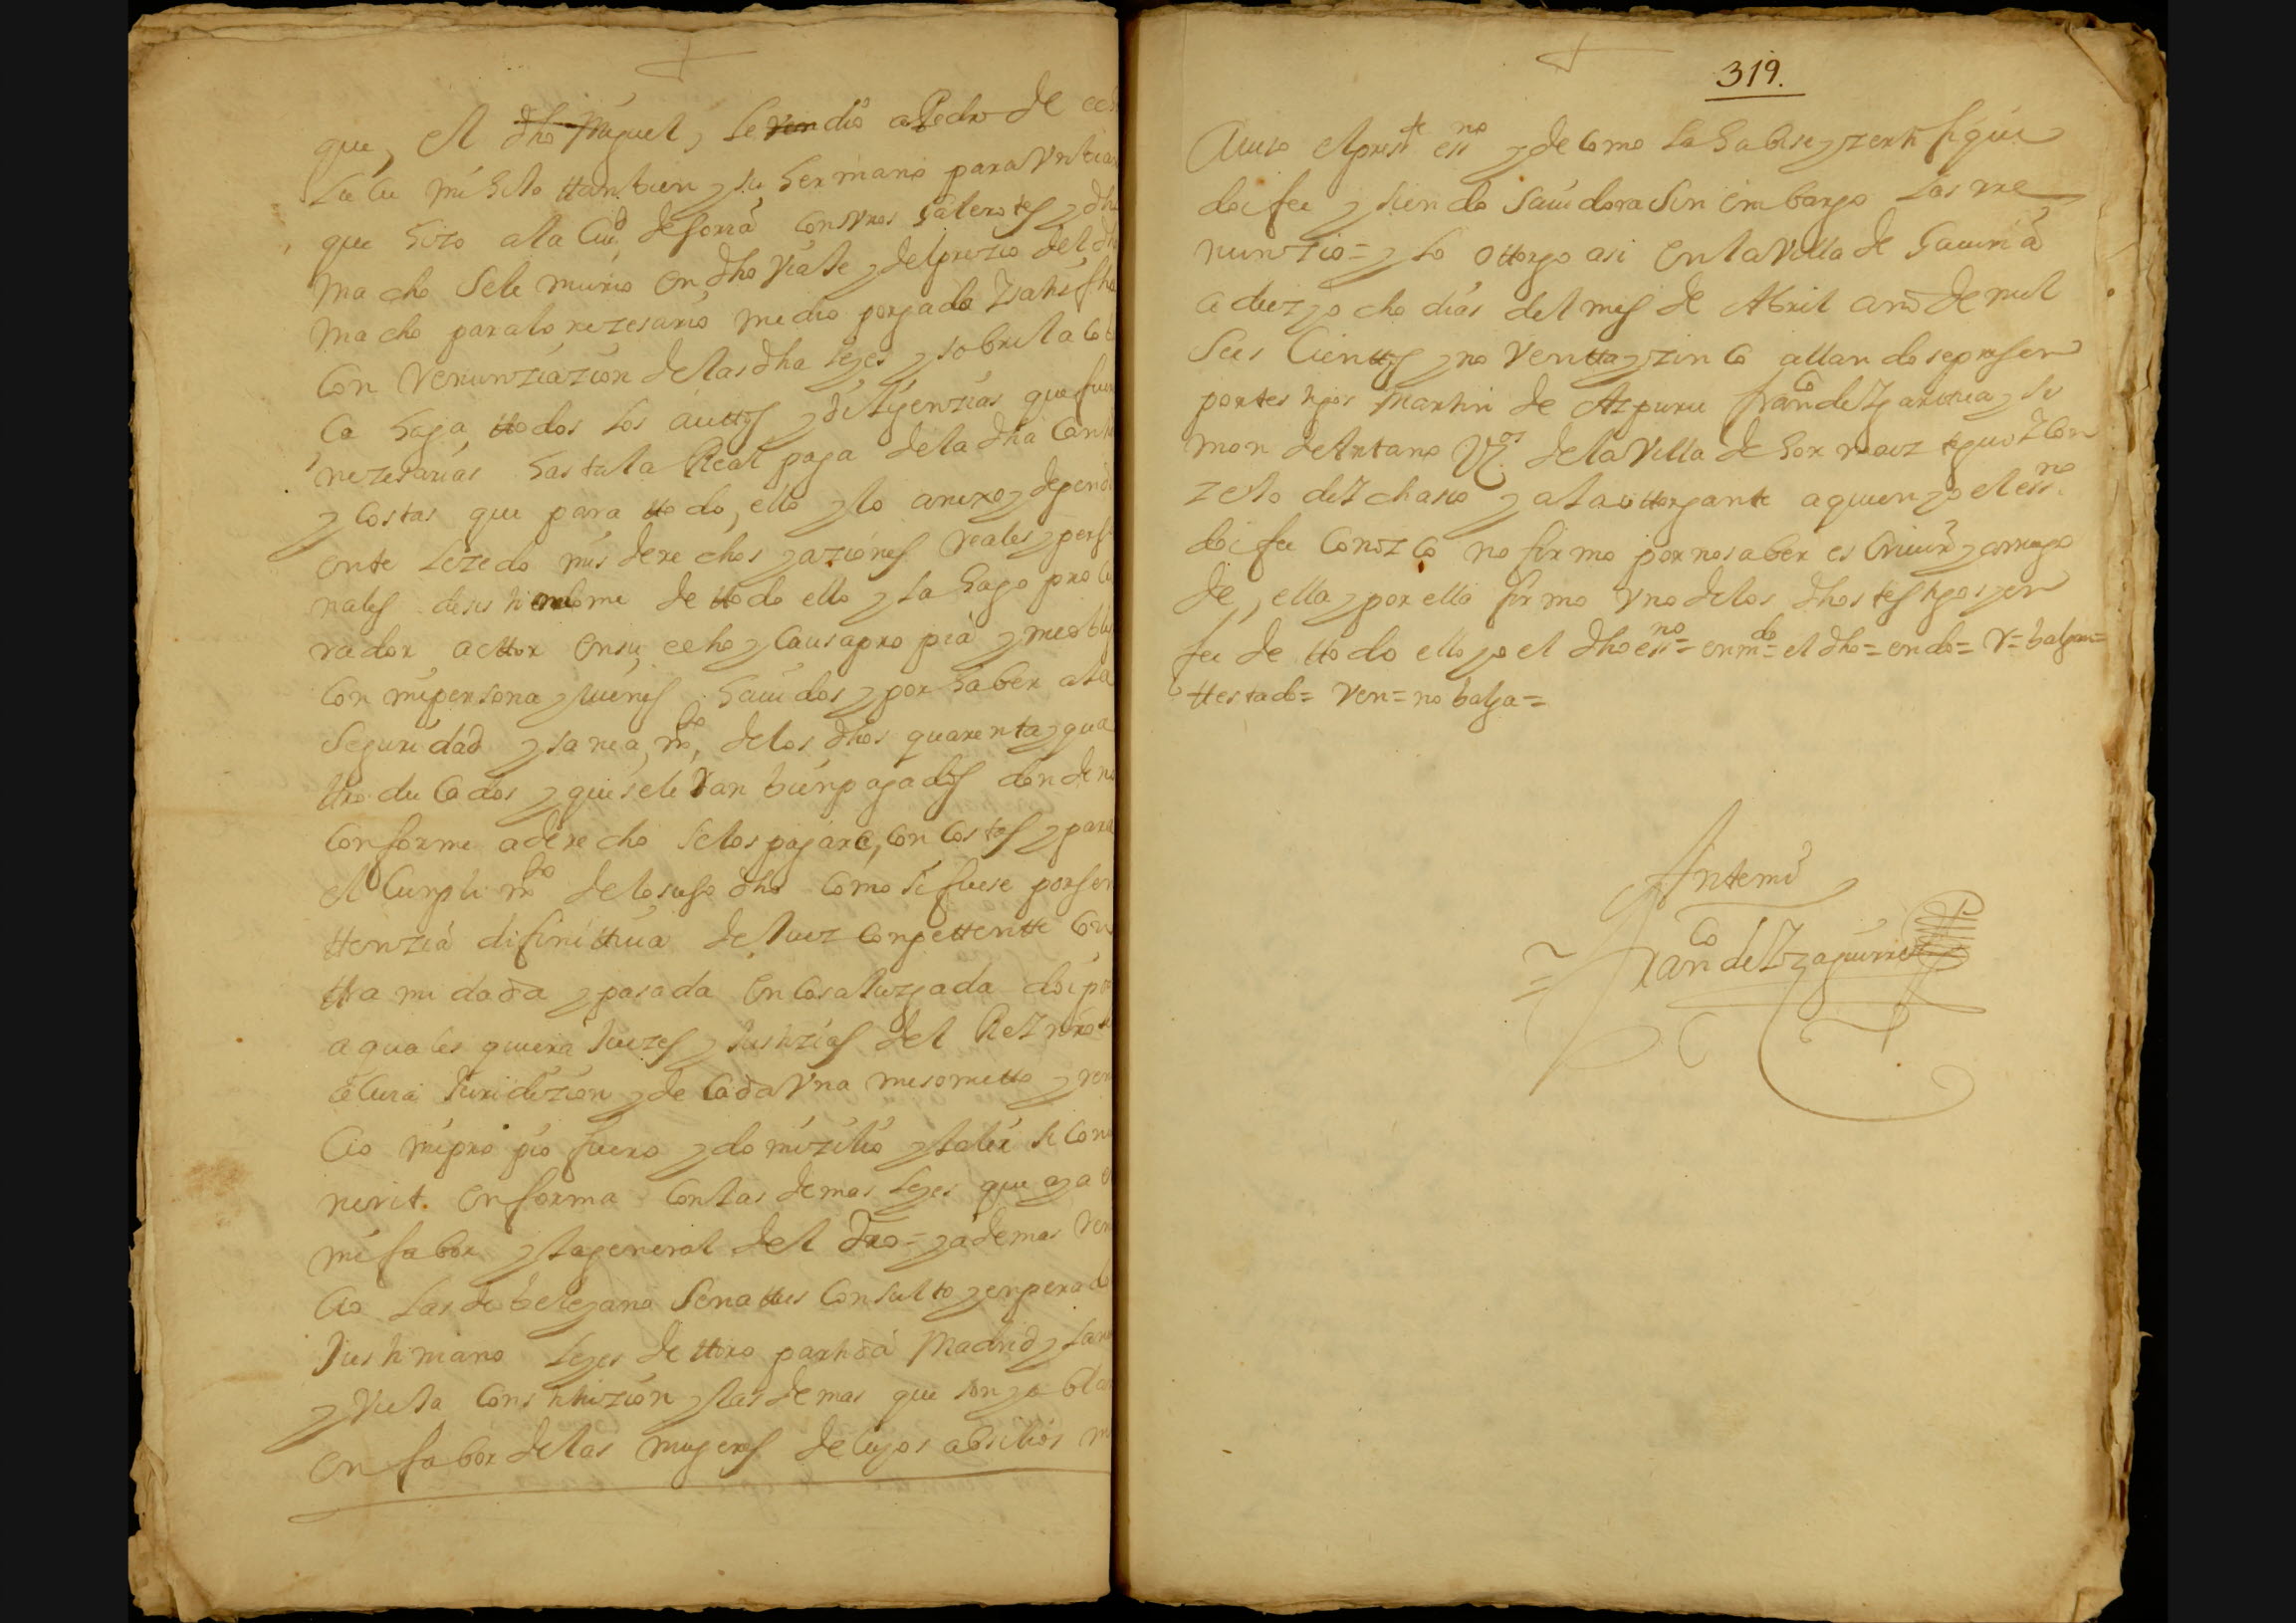 que, el dho Miguel, le ven dio a Pedro de ech
la cu mi hito ttanbien y su hermano para Un bia
que hizo a la Ciud de soria con Unos galerotes y dho
macho se le murio en dho viaje y del prezio del dho
macho para lo nezesario me dio pagado y satisfho
con renunziazion de las dha leyes y sobre la co
ca haga ttodos los auttos y diligenzias que fue
nezesarias hasta la Real paga de la dha cant
y costas que para ttodo, ello y lo anexo y depend
ente le zedo mis derechos y aziones reales y perso
nales desisti en de ttodo ello y la hago procu
rador acttor en su echo y causa propia y me obli
con mi persona y vienes hauidos y por haber a la
seguridad y sanea mto, de los dhos quarenta y qua
ttro ducados y que se le Van bien pagados donde no
conforme a derecho se los pagare, con costas y para
el Cunpli mto de lo suso dho como si fuese por sen
ttenzia difinittiua de Juez conpettentte con
ttra mi dada y pasada en cosa Juzgada doi po
a quales quiera Juezes y Justizias del Rei nro
a cuia Juridizion y de cada Una me sometto y ren
cio mi propio fuero y domizilio y la lei si conue
nerit en forma con las demas leyes que aya e
mi fabor y la general del dro = y ademas ren
cio las de beleyano Senattus consulto y enperado
Justiniano leyes de ttoro partida Madrid y la n
y Vieta constituzion y las demas que son y ablan
en fabor de las mugeres de cuyos absilios m
319.
Auiso el preste essno y de como la habise y zertifique
doi fee y siendo sauidora sin embargo las rre
nunzio = y lo ottorgo asi en la Villa de Gauiria
a diez y ocho dias del mes de Abril ano de mil
seis Cienttos y no Ventta y zinco allandose presen
por testigos Martin de Azpuru franco de Ygartua y Si
mon de Antano Vzos de la Villa de hormaiz tegui y Con
zejo de Ychaso y a la ottorgante a quien yo el essno
doi fee conozco no firmo por no saber escriuir y a rruego
de, ella y por ella firmo Uno de los dhos testigos y en
fee de ttodo ello yo el dho essno = enmdo = el dho = endo = V = balgan =
ttestado = Ven = no balga =
Antemi
Franco de Yzaguirre